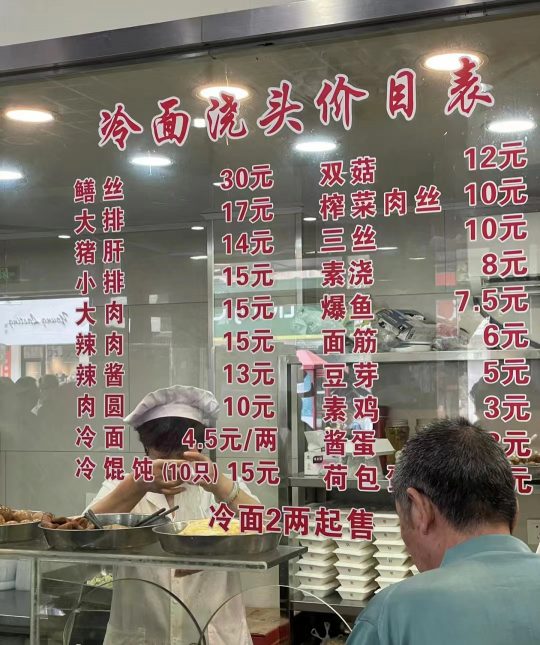 冷面浇头价目表
鳝丝 30元
大排 17元
猪肝 14元
小排 15元
大肉 15元
辣肉 15元
辣酱 13元
肉圆 10元
冷面 4.5元/两
冷馄饨(10只) 15元
双菇 12元
榨菜肉丝 10元
三丝 10元
素浇 8元
爆鱼 7.5元
面筋 6元
豆芽 5元
素鸡 3元
酱蛋 元
荷包 元
冷面2两起售